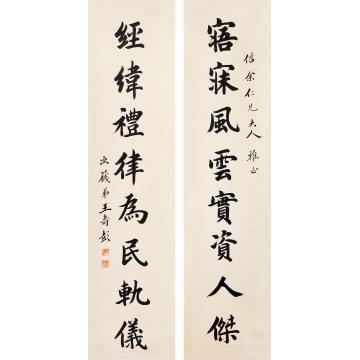 寤寐風雲實資人傑
信余仁兄大人 雅正
經緯禮律為民軌儀
次篯弟王壽彭